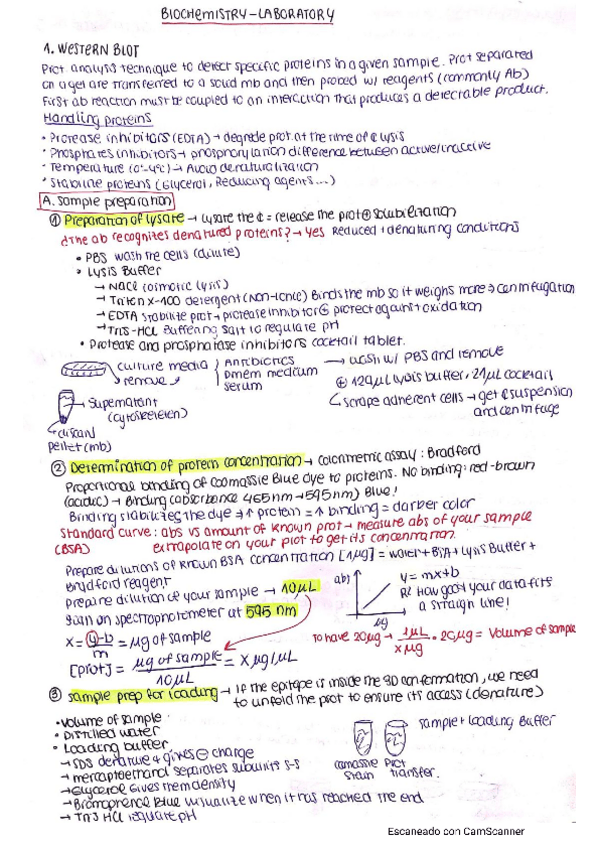 BIOCHEMISTRY-LABORATORY
1. WESTERN BLOT
Prot analysis technique to detect specific proteins in a given sample. Prot separated
on a gel are transferred to a solid mb and then probed w/ reagents (commonly Ab)
First ab reaction must be coupled to an interaction that produces a detectable product.
Handling proteins
• Protease inhibitors (EDTA) → degrade prot at the time of ¢ lysis
• Phosphates inhibitors → phosphorylation difference between active/inactive
• Temperature (0°-4°C) → Avoid denaturalization
• Stabilize proteins (Glycerol, Reducing agents...)
A. Sample preparation
① Preparation of lysate → Lysate the ¢ = release the prot ⊕ solubilization
¿The ab recognizes denatured proteins? → Yes Reduced + denaturing conditions
• PBS wash the cells (dilute)
• Lysis Buffer
→ NaCl (osmotic lysis)
→ Triton X-100 detergent (Non-ionic) Binds the mb so it weighs more → centrifugation
→ EDTA stabilize prot → protease inhibitor ⊕ protect against oxidation
→ Tris-HCl Buffering salt to regulate pH
• Protease and phosphatase inhibitors cocktail tablet.
culture media
remove
Antibiotics
Dmem medium
serum
→ wash w/ PBS and remove
⊕ 129µL lysis buffer, 21µL cocktail
↳ scrape adherent cells → get ¢ suspension
and centrifuge
→ Supernatant
(cytoskeleton)
discard
pellet (mb)
② Determination of protein concentration → colorimetric assay: Bradford
Proportional binding of coomassie Blue dye to proteins. No binding: red-brown
(acidic) → Binding (absorbance 465nm → 595nm) Blue!
Binding stabilizes the dye → ↑ protein = ↑ binding = darker color
Standard curve: abs vs amount of known prot → measure abs of your sample
(BSA) extrapolate on your plot to get its concentration.
Prepare dilutions of known BSA concentration [1µg] = water + BSA + Lysis Buffer +
Bradford reagent
Prepare dilution of your sample → 10µL
Scan on spectrophotometer at 595 nm
abs
µg
y = mx+b
R² How good your data fits
a straight line!
x = y-b / m = µg of sample
[prot] = µg of sample / 10µL = x µg/µL
To have 20µg → 1µL / xµg · 20µg = Volume of sample
③ Sample prep for loading → If the epitope is inside the 3D conformation, we need
to unfold the prot to ensure its access (denature)
• Volume of sample
• Distilled water
• Loading buffer
→ SDS denature & gives ⊖ charge
→ mercaptoethanol separates subunits S-S
→ Glycerol Gives them density
→ Bromophenol Blue visualize when it has reached the end
→ Tris HCl regulate pH
sample + Loading Buffer
comassie
stain
Prot
transfer.
Escaneado con CamScanner